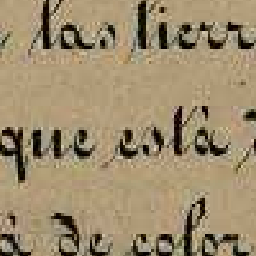 las tierr
que està
à de color